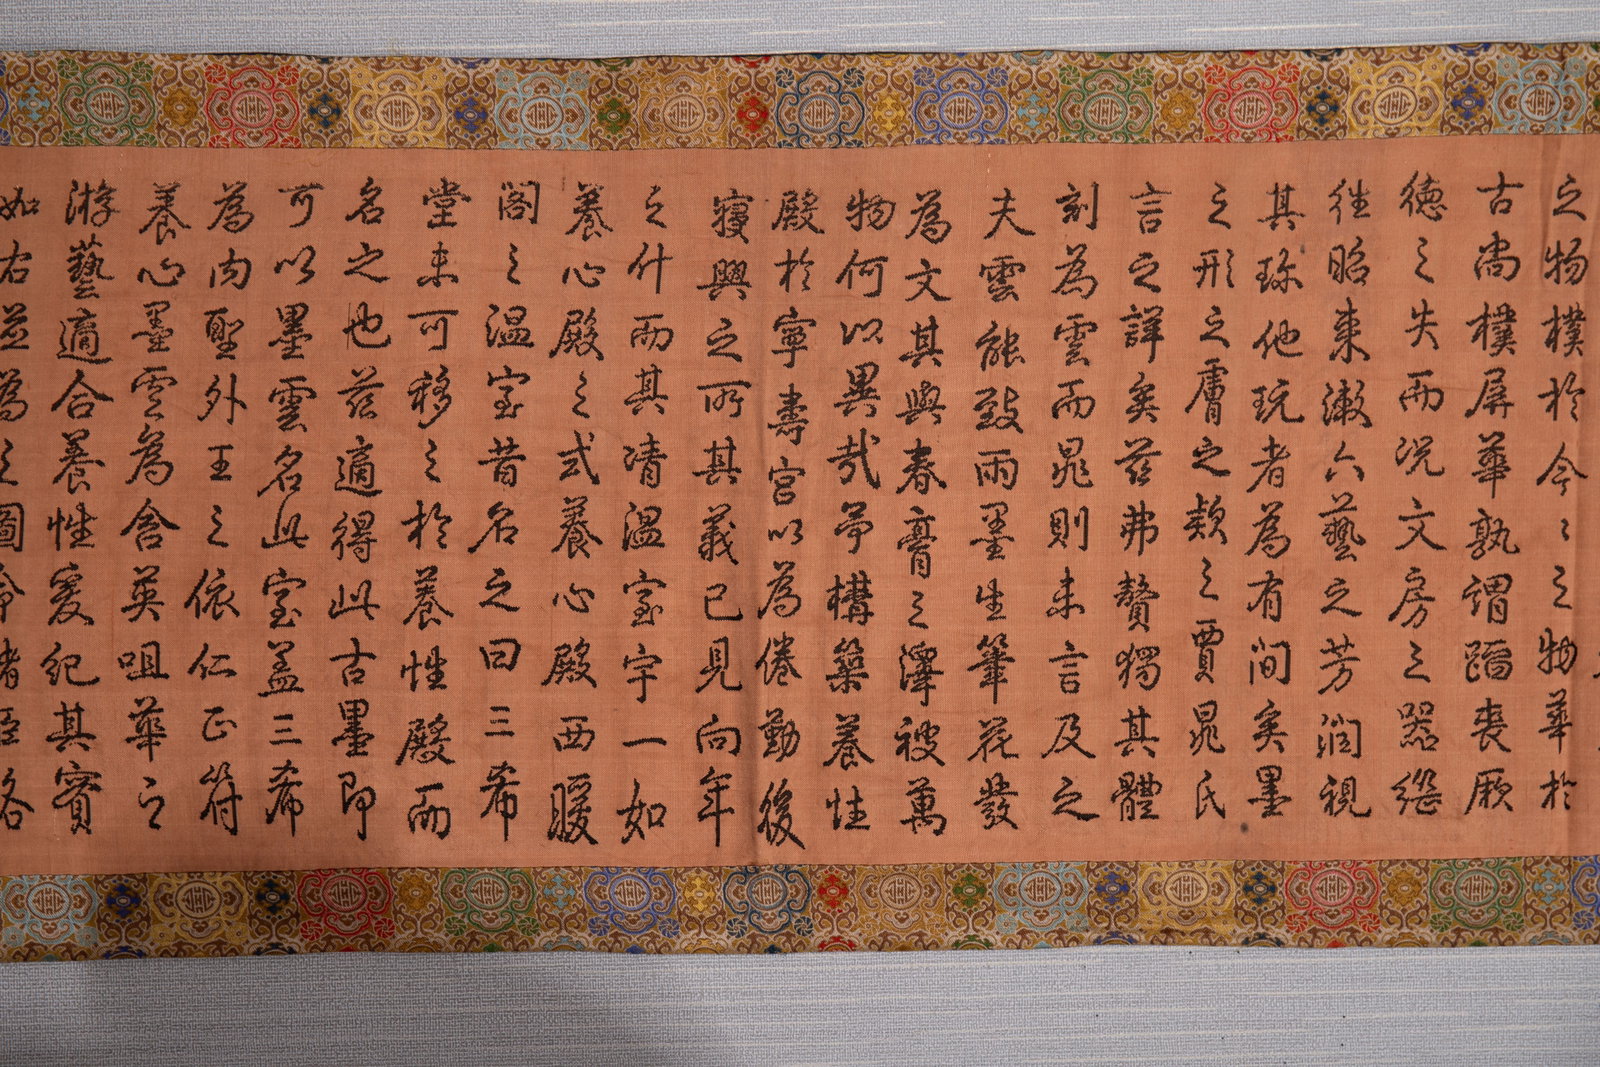 之物樸於今之之物華於
古尚樸屏華孰謂蹈喪厥
德之失而況文房之器繼
往昭来潄六藝之芳润視
其珎他玩者為有间矣墨
之形之膚之款之賈晁氏
言之詳矣茲弗贅獨其體
刻為雲而晁則未言及之
夫雲能致雨墨生筆花發
為文其與春膏之澤被萬
物何以異哉爭構築養性
殿於寧壽宫以為倦勤後
寝興之所其義已見向年
之什而其凊温室宇一如
養心殿之式養心殿西暖
阁之温室昔名之曰三希
堂未可移之於養性殿而
名之也茲適得此古墨即
可以墨雲名此室盖三希
為内聖外王之依仁正符
養心墨雲為含英咀華之
游藝適合養性爰纪其賓
如右並為之圖命諸臣各